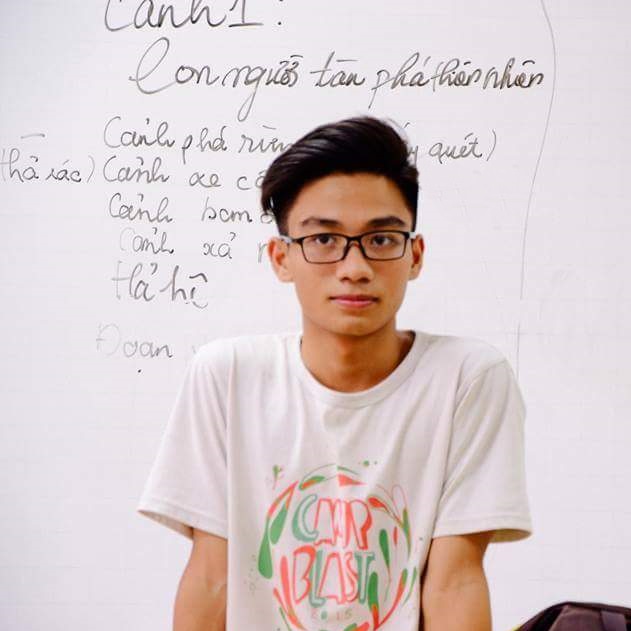 Cảnh 1:
Con người tàn phá thiên nhiên
Cảnh phá rừn quét)
thả rác) Cảnh xe
Cảnh bom
Cảnh xả
Hả hê
Đoạn
CAMP
BLAST
2015